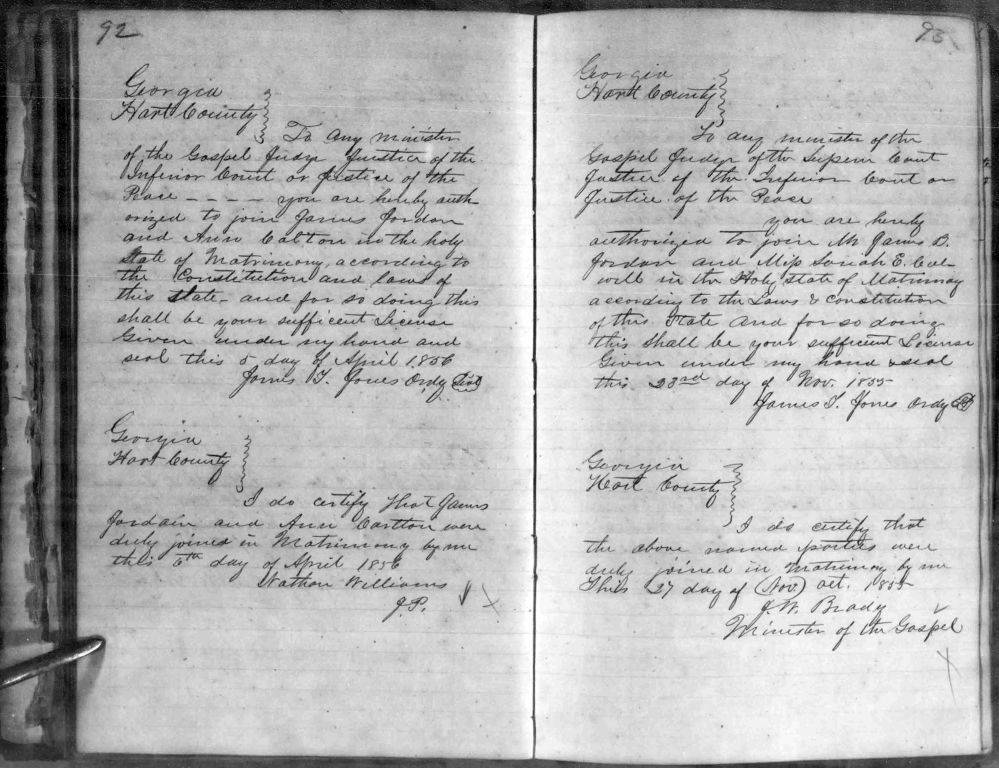 92
Georgia
Hart County
To any minister
of the Gospel Judge Justice of the
Inferior Court or Justice of the
Peace - - - - you are hereby auth-
orized to join James Jordan
and Ann Calton in the holy
State of Matrimony, according to
the Constitution and laws of
this State - and for so doing this
shall be your sufficent License
Given under my hand and
seal this 5 day of April 1856
James T. Jones Ordy Seal
Georgia
Hart County
I do certify that James
Jordain and Ann Carlton were
duly joined in Matrimony by me
this 6th day of April 1856
Nathan Williams
J.P.
93
Georgia
Hart County
To any minister of the
Gospel Judge of the Superior Court
Justice of the Inferior Court or
Justice of the Peace
you are hereby
authorized to join Mr James D.
Jordan and Miss Sarah E.
in the Holy State of Matrimony
according to the Laws & Constitution
of this State and for so doing
this shall be your sufficient License
Given under my hand & seal
this 23rd day of Nov. 1855
James T. Jones Ordy
Georgia
Hart County
I do certify that
the above named parties were
duly joined in Matrimony by me
This 27 day of (Nov.) oct. 1855
J. W. Brady
Minister of the Gospel